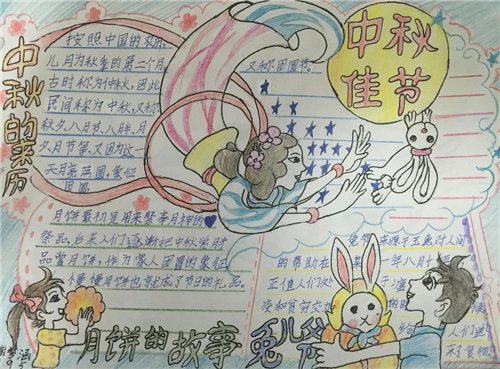 中秋佳节
中秋的来历
按照中国的农历,
八月为秋季的第二个月
古时称为仲秋,因此
民间称为中秋,又称
秋夕、八月节、八月半、月
夕、月节等,又因为这一
天月亮满圆,象征
团圆
又称团圆节。
月饼最初是用来祭奉月神的
祭品,后来人们逐渐把中秋赏月
品赏月饼,作为家人团圆的象征
慢慢月饼也就成了节日的礼品。
月饼的故事
来源于玉兔对人间
的帮助在
年八月十
正值人们处于
人们送
来了食物
兔儿爷